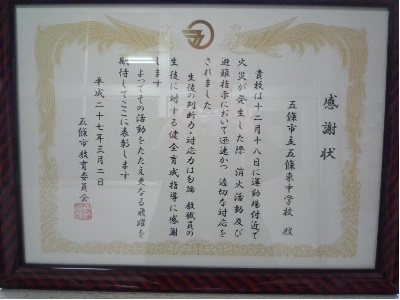 感謝状
五條市立五條東中学校 殿
貴校は十二月十八日に運動場付近で
火災が発生した際 消火活動及び
避難指示において迅速かつ適切な対応を
されました
生徒の判断力・対応力は勿論 教職員の
生徒に対する健全育成指導に感謝
します
よってその活動をたたえ更なる飛躍を
期待してここに表彰します
平成二十七年三月二日
五條市教育委員会